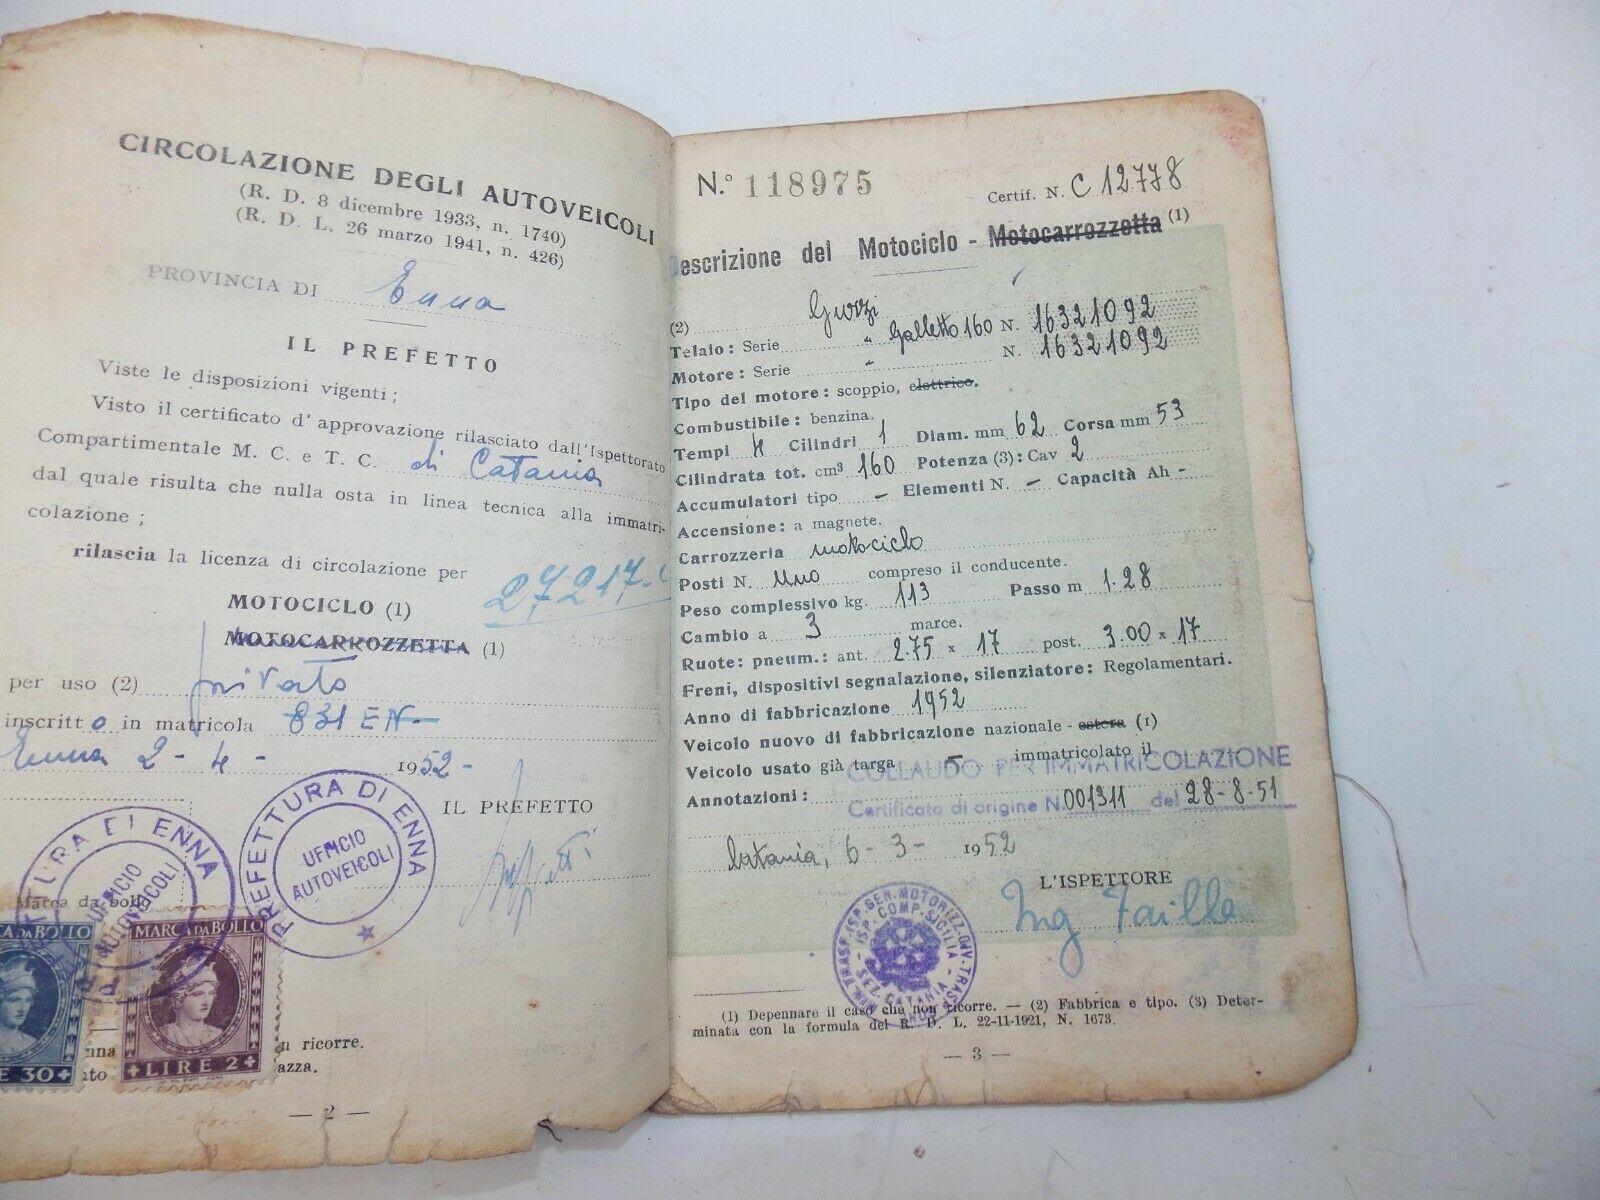 CIRCOLAZIONE DEGLI AUTOVEICOLI
(R. D. 8 dicembre 1933, n. 1740)
(R. D. L. 26 marzo 1941, n. 426)
PROVINCIA DI Enna
IL PREFETTO
Viste le disposizioni vigenti;
Visto il certificato d'approvazione rilasciato dall'Ispettorato
Compartimentale M. C. e T. C. di Catania
dal quale risulta che nulla osta in linea tecnica alla immatri-
colazione;
rilascia la licenza di circolazione per
27217
MOTOCICLO (1)
MOTOCARROZZETTA (1)
per uso (2) privato
inscritto in matricola 831 EN
Enna 2-4-1952-
IL PREFETTO
PREFETTURA DI ENNA
UFFICIO
AUTOVEICOLI
TURA DI ENNA
UFFICIO
AUTOVEICOLI
Marca da bollo
CA DA BOLLO
MARCA DA BOLLO
E 30
LIRE 2
n ricorre.
azza.
— 2 —
N.° 118975
Certif. N. C 12778
Descrizione del Motociclo - Motocarrozzetta (1)
(2) Guzzi
Telaio: Serie " Galletto 160 N. 16321092
Motore: Serie " N. 16321092
Tipo del motore: scoppio, elettrico.
Combustibile: benzina.
Tempi 4 Cilindri 1 Diam. mm 62 Corsa mm 53
Cilindrata tot. cm³ 160 Potenza (3): Cav 2
Accumulatori tipo - Elementi N. - Capacità Ah -
Accensione: a magnete.
Carrozzeria motociclo
Posti N. Uno compreso il conducente.
Peso complessivo kg. 113 Passo m 1.28
Cambio a 3 marce.
Ruote: pneum.: ant. 2.75 x 17 post. 3.00 x 17
Freni, dispositivi segnalazione, silenziatore: Regolamentari.
Anno di fabbricazione 1952
Veicolo nuovo di fabbricazione nazionale - estera (1)
Veicolo usato già targa immatricolato il
COLLAUDO PER IMMATRICOLAZIONE
Annotazioni:
Certificato di origine N. 001311 del 28-8-51
Catania, 6-3-1952
L'ISPETTORE
Ing Failla
(1) Depennare il caso che non ricorre. — (2) Fabbrica e tipo. (3) Deter-
minata con la formula del R. D. L. 22-11-1921, N. 1673.
— 3 —